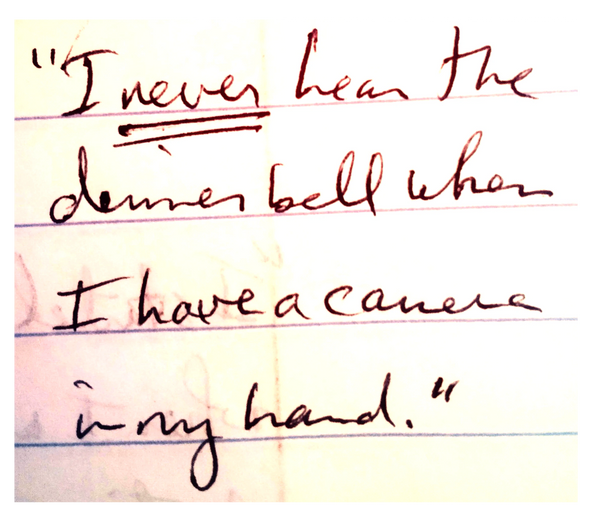 "I never hear the
dinner bell when
I have a camera
in my hand."